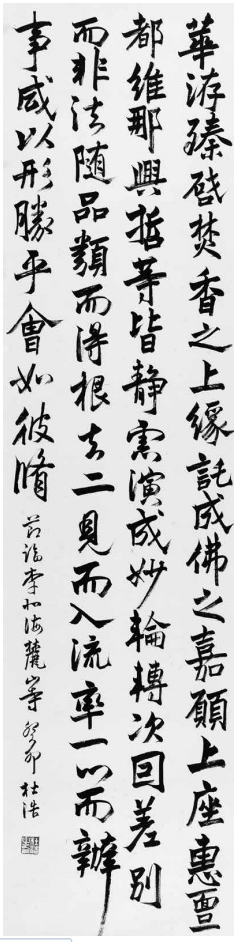 華游臻啓焚香之上緣託成佛之嘉願上座惠亶
都維那興哲等皆靜慮演成妙輪轉次回差別
而非法随品類而得根去二見而入流率一心而辦
事咸以形勝乎會如彼脩
節臨李北海麓山寺癸卯杜浩